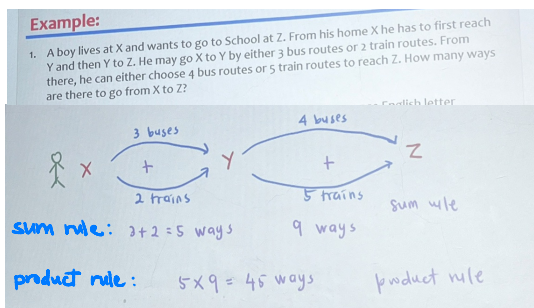 Example:
1. A boy lives at X and wants to go to School at Z. From his home X he has to first reach
Y and then Y to Z. He may go X to Y by either 3 bus routes or 2 train routes. From
there, he can either choose 4 bus routes or 5 train routes to reach Z. How many ways
are there to go from X to Z?
English letter
3 buses
4 buses
X + Y + Z
2 trains
5 trains
sum rule
sum rule: 3+2=5 ways 9 ways
product rule: 5x9= 45 ways product rule